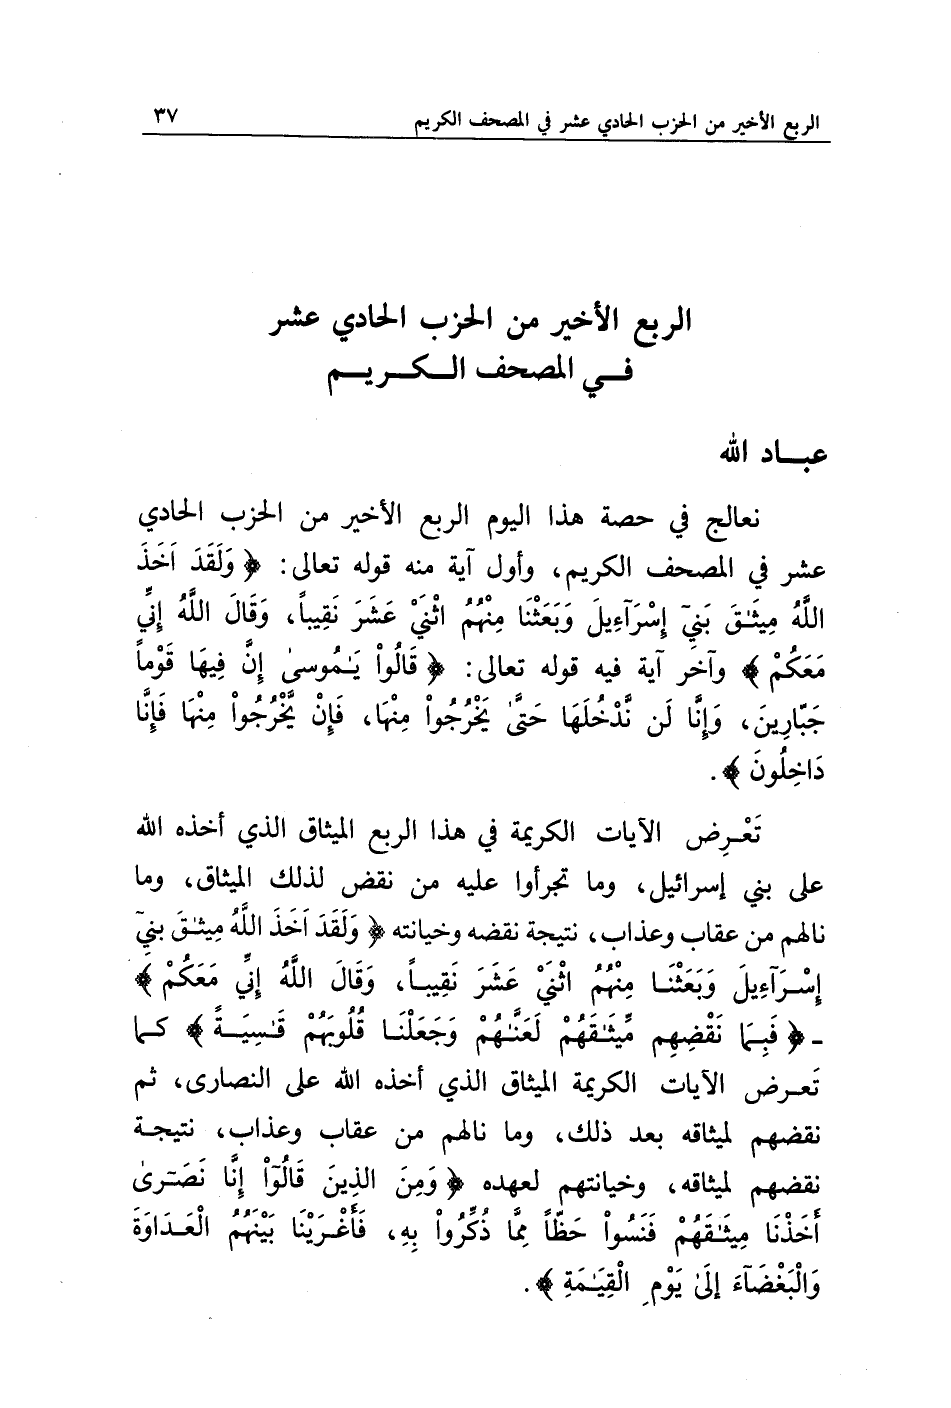 الربع الأخير من الحزب الحادي عشر في المصحف الكريم ٣٧
الربع الأخير من الحزب الحادي عشر
فـي المصحف الـكـريـم
عبـاد الله
نعالج في حصة هذا اليوم الربع الأخير من الحزب الحادي
عشر في المصحف الكريم، وأول آية منه قوله تعالى: ﴿ وَلَقَدَ اَخَذَ
اللَّهُ مِيثَـٰقَ بَنِيٓ إِسْرَآءِيلَ وَبَعَثْنَا مِنْهُمُ اثْنَيْ عَشَرَ نَقِيباً، وَقَالَ اللَّهُ إِنِّي
مَعَكُمْ ﴾ وآخر آية فيه قوله تعالى: ﴿ قَالُواْ يَـٰمُوسىٰ إِنَّ فِيهَا قَوْماً
جَبّارِينَ، وَإِنَّا لَن نَّدْخُلَهَا حَتَّىٰ يَخْرُجُواْ مِنْهَا، فَإِنْ يَّخْرُجُواْ مِنْهَا فَإِنَّا
دَاخِلُونَ ﴾.
تَعْـرِض الآيات الكريمة في هذا الربع الميثاق الذي أخذه الله
على بني إسرائيل، وما تجرأوا عليه من نقض لذلك الميثاق، وما
نالهم من عقاب وعذاب، نتيجة نقضه وخيانته ﴿ وَلَقَدَ اَخَذَ اللَّهُ مِيثَـٰقَ بَنِيٓ
إِسْـرَآءِيلَ وَبَعَثْنَـا مِنْهُمُ اثْنَيْ عَشَرَ نَقِيبـاً، وَقَالَ اللَّهُ إِنِّي مَعَكُمْ ﴾
ـ ﴿ فَبِمَا نَقْضِهِم مِّيثَـٰقَهُمْ لَعَنَّـٰهُمْ وَجَعَلْنَـا قُلُوبَهُمْ قَـٰسِيَـةً ﴾ كـما
تَعـرض الآيات الكريمة الميثاق الذي أخذه الله على النصارى، ثم
نقضهم لميثاقه بعد ذلك، وما نالهم من عقاب وعذاب، نتيجـة
نقضهم لميثاقه، وخيانتهم لعهده ﴿ وَمِنَ الذِينَ قَالُوٓاْ إِنَّا نَصَـٰرَىٰ
أَخَذْنَا مِيثَـٰقَهُمْ فَنَسُواْ حَظّاً مِمَّا ذُكِّرُواْ بِهِ، فَأَغْـرَيْنَا بَيْنَهُمُ الْعَـدَاوَةَ
وَالْبَغْضَآءَ إلَىٰ يَوْمِ الْقِيَـٰمَةِ ﴾.